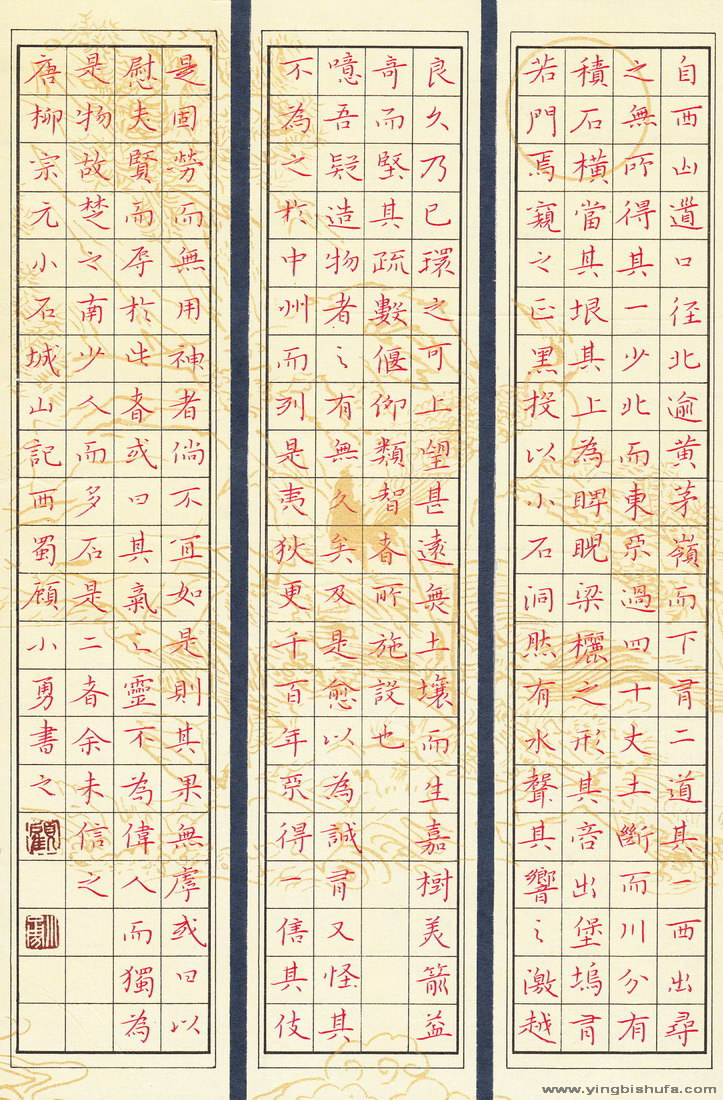 自西山道口徑北逾黃茅嶺而下有二道其一西出尋
之無所得其一少北而東不過四十丈土斷而川分有
積石橫當其垠其上為睥睨梁欐之形其旁出堡塢有
若門焉窺之正黑投以小石洞然有水聲其響之激越
良久乃已環之可上望甚遠無土壤而生嘉樹美箭益
奇而堅其疏數偃仰類智者所施設也
噫吾疑造物者之有無久矣及是愈以為誠有又怪其
不為之於中州而列是夷狄更千百年不得一售其伎
是固勞而無用神者倘不宜如是則其果無虖或曰以
慰夫賢而辱於此者或曰其氣之靈不為偉人而獨為
是物故楚之南少人而多石是二者余未信之
唐柳宗元小石城山記西蜀顧小勇書之
顧
小勇
www.yingbishufa.com